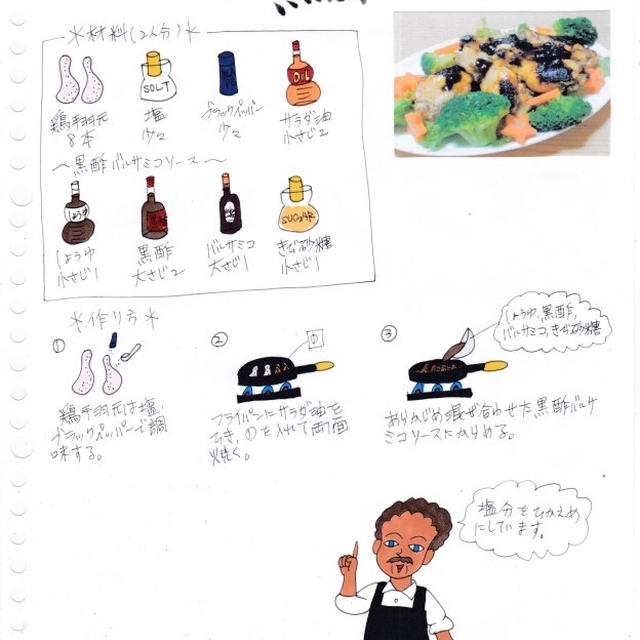 ＊材料(2人分)＊
SOLT
OIL
鶏手羽元
8本
塩
少々
ブラックペッパー
少々
サラダ油
小さじ2
～黒酢バルサミコソース～
しょうゆ
SUGAR
しょうゆ
小さじ1
黒酢
大さじ2
バルサミコ
大さじ1
きび砂糖
小さじ1
＊作り方＊
①
鶏手羽元は塩・
ブラックペッパーで調
味する。
②
①
フライパンにサラダ油を
ひき、①を入れて両面
焼く。
③
しょうゆ,黒酢,
バルサミコ,きび砂糖
あらかじめ混ぜ合わせた黒酢バルサ
ミコソースにからめる。
塩分をひかえめ
にしています。